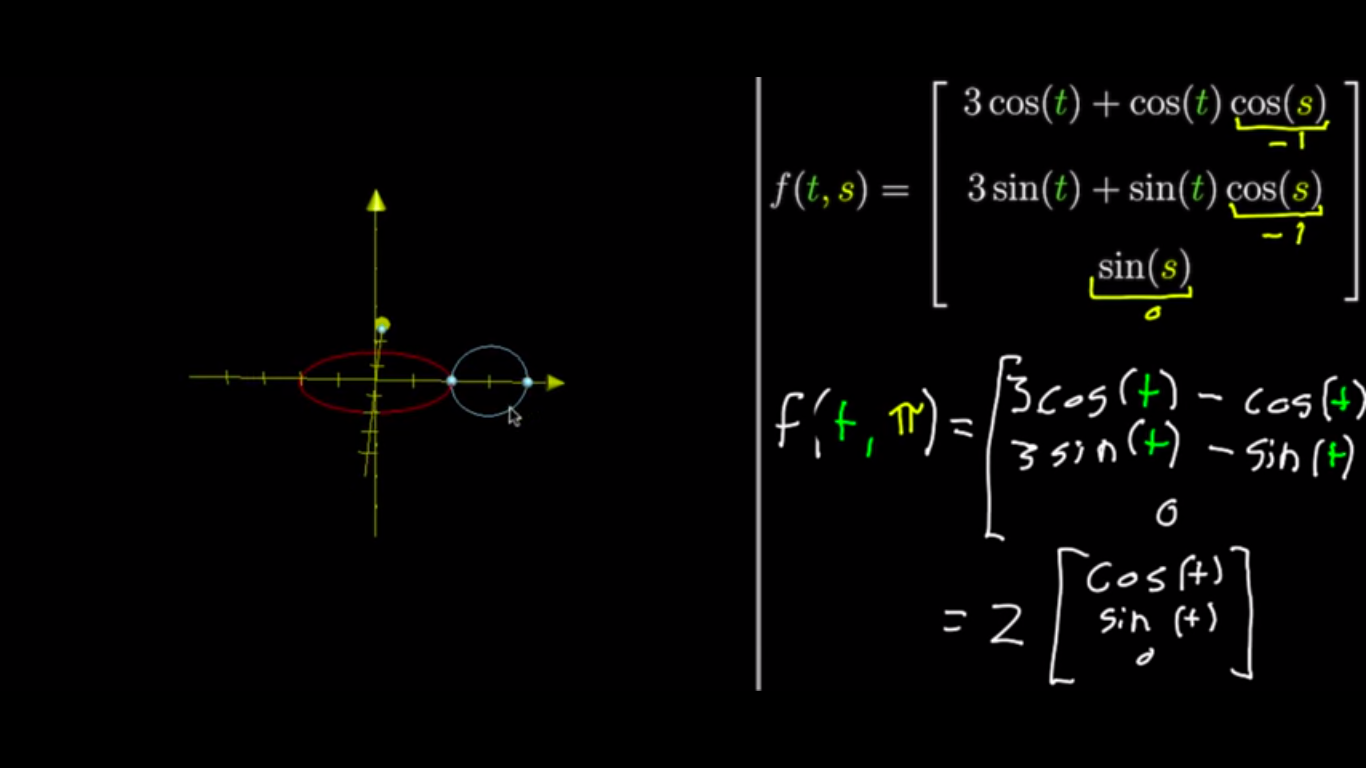 3 cos(t) + cos(t) cos(s)
-1
f(t, s) = 3 sin(t) + sin(t) cos(s)
-1
sin(s)
0
f(t, π) = 3cos(t) - cos(t)
3 sin(t) - sin(t)
0
= 2 cos(t)
sin(t)
0